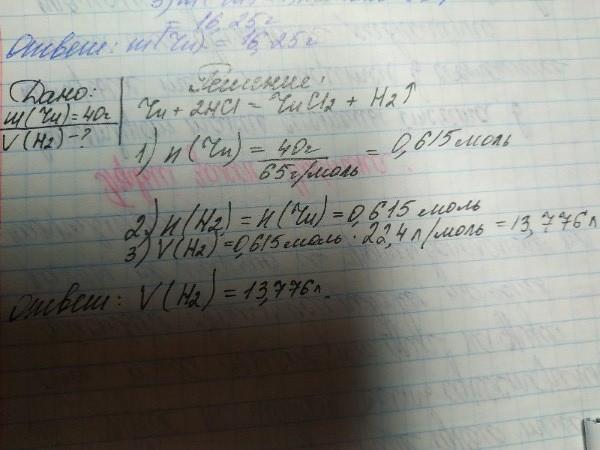 = 16,25г
Ответ: m(Zn) = 16,25г
Дано:
m(Zn)=40г
V(H₂)-?
Решение:
Zn + 2HCl = ZnCl₂ + H₂↑
1) n(Zn) = 40г / 65г/моль = 0,615 моль
2) n(H₂) = n(Zn) = 0,615 моль
3) V(H₂)=0,615 моль · 22,4 л/моль = 13,776 л
Ответ: V(H₂) = 13,776 л.